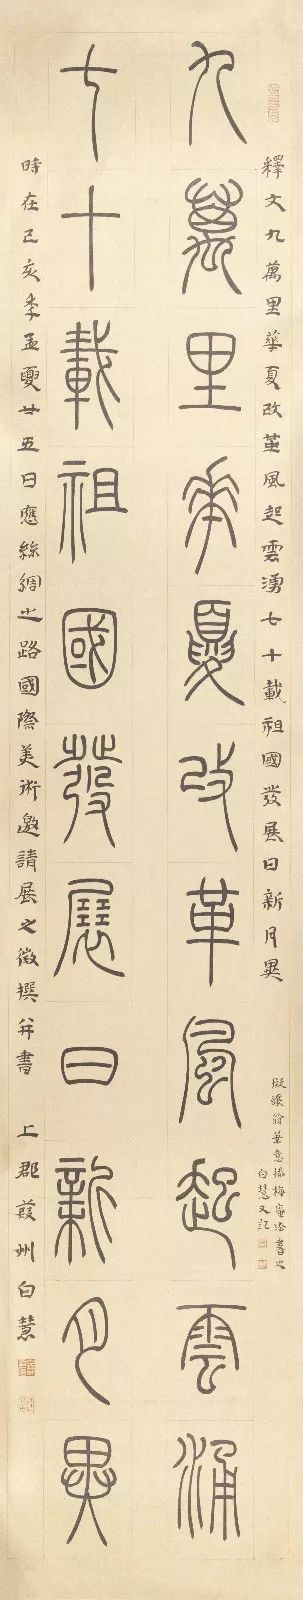 釋文九萬里華夏改革風起雲湧七十載祖國發展日新月異
九萬里華夏改革風起雲涌
七十載祖國發展日新月異
時在己亥季孟夏廿五日應絲綢之路國際美術邀請展之徵撰并書 上郡葭州白慧
白慧又記